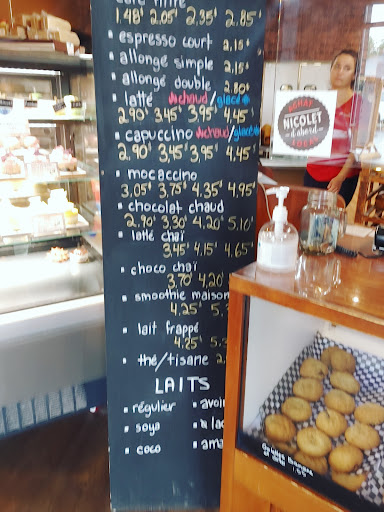 1.48¢ 2.05¢ 2.95¢ 2.85¢
• espresso court 2,15¢
• allongé simple 2,15¢
• allongé double 2.80¢
• latté chaud/glacé
2.90¢ 3.45¢ 3.95¢ 4.45¢
• capuccino chaud/glacé
2.90¢ 3.45¢ 3.95¢ 4.45¢
• mocaccino
3.05¢ 3.75¢ 4.35¢ 4.95¢
• chocolat chaud
2.90¢ 3.30¢ 4.20¢ 5.10¢
• latté chaï
3.45¢ 4.15¢ 4.65¢
• choco chaï
3.70¢ 4.20¢
• smoothie maison
4.25¢ 5.
• lait frappé
4.25¢ 5.
• thé/tisane 2,
LAITS
• régulier
• soya
• coco
• avoi
• ama
ACHAT
NICOLET
d'abord